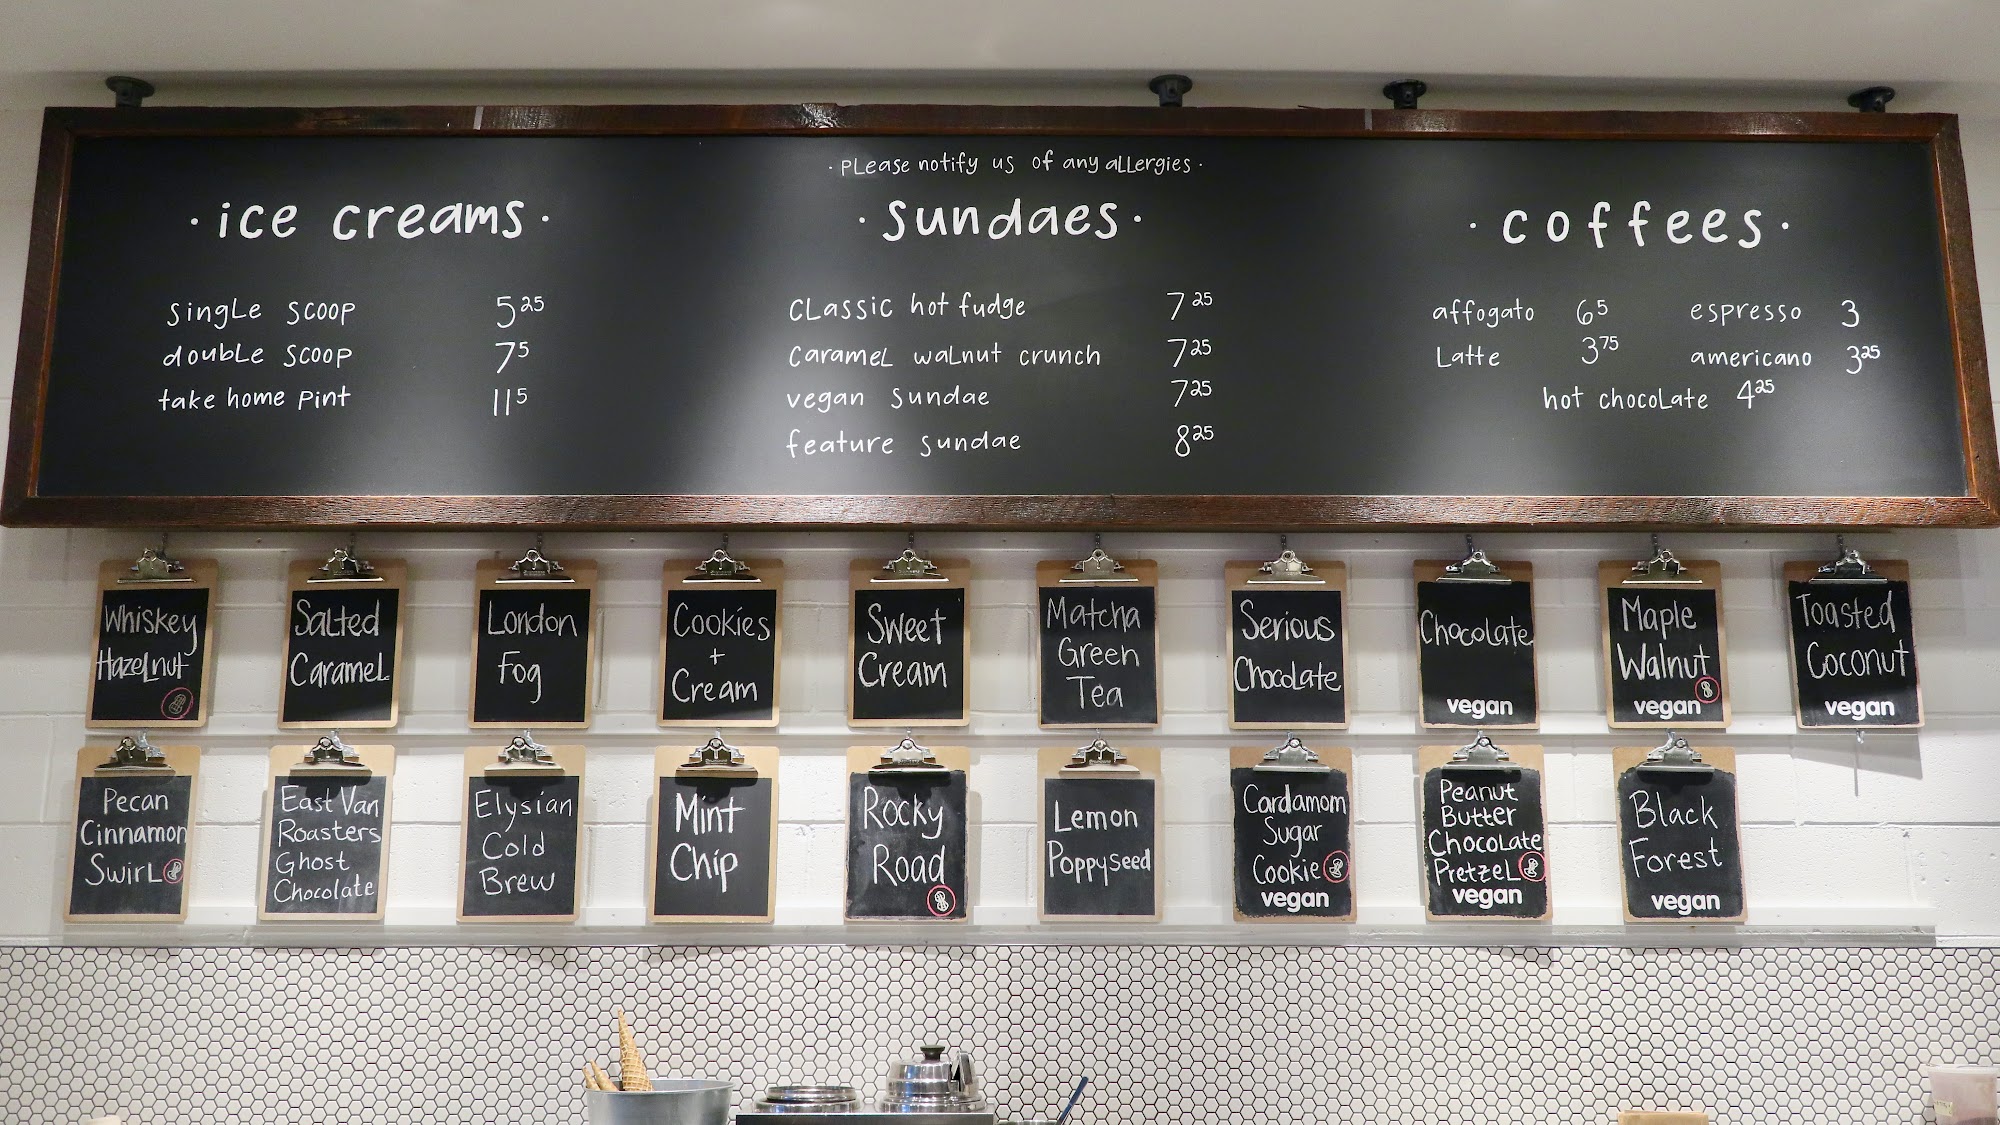 · Please notify us of any allergies ·
· ice creams ·
single scoop 5 25
double scoop 7 5
take home pint 11 5
· sundaes ·
classic hot fudge 7 25
caramel walnut crunch 7 25
vegan sundae 7 25
feature sundae 8 25
· coffees ·
affogato 6 5 espresso 3
Latte 3 75 americano 3 25
hot chocolate 4 25
Whiskey
Hazelnut
Salted
Caramel
London
Fog
Cookies
+
Cream
Sweet
Cream
Matcha
Green
Tea
Serious
Chocolate
Chocolate
vegan
Maple
Walnut
vegan
Toasted
Coconut
vegan
Pecan
Cinnamon
Swirl
East Van
Roasters
Ghost
Chocolate
Elysian
Cold
Brew
Mint
Chip
Rocky
Road
Lemon
Poppyseed
Cardamom
Sugar
Cookie
vegan
Peanut
Butter
Chocolate
Pretzel
vegan
Black
Forest
vegan